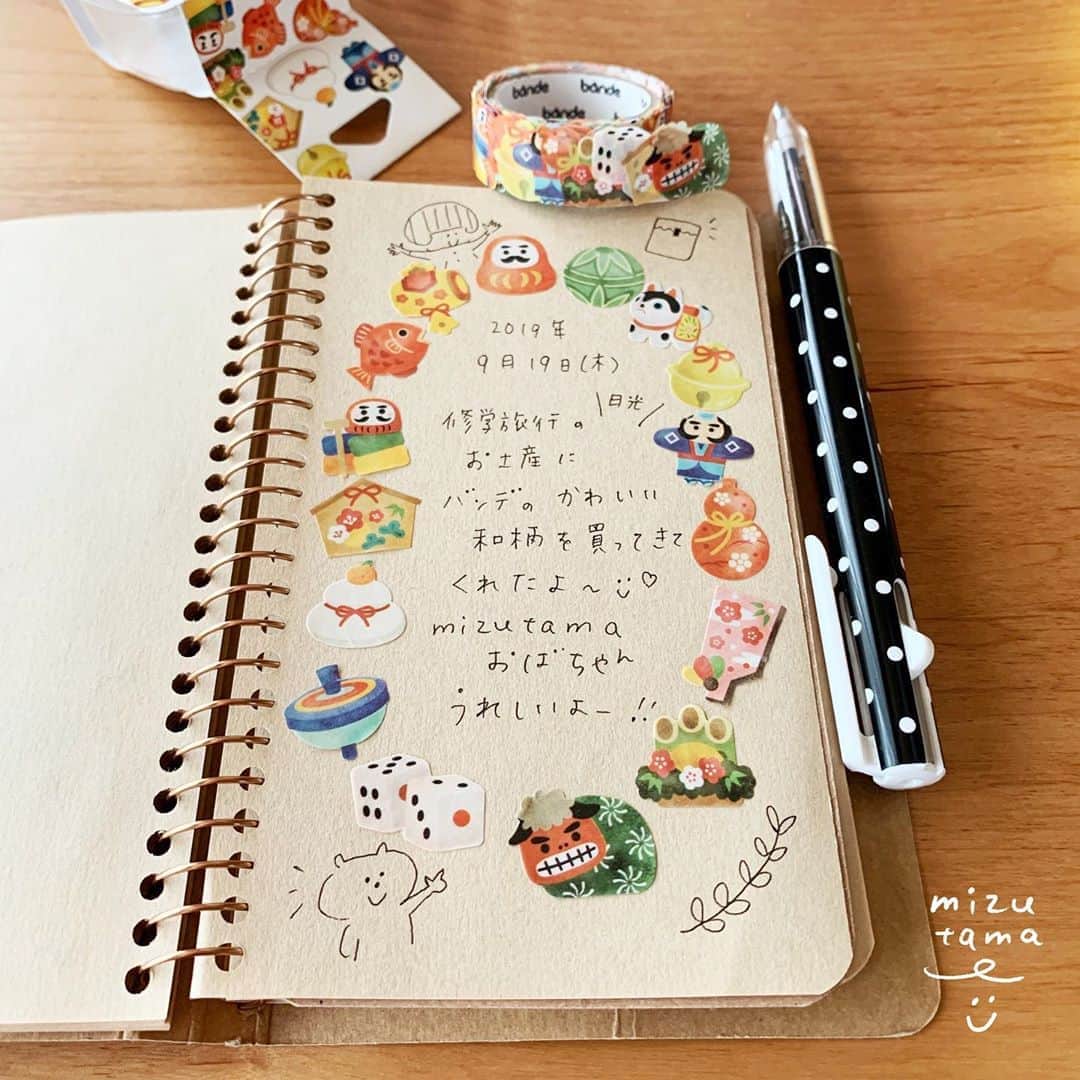 bande bande
bande
2019年
9月19日(木)
日光
修学旅行の
お土産に
バンデのかわいい
和柄を買ってきて
くれたよ〜
mizutama
おばちゃん
うれしいよー!!
mizu
tama